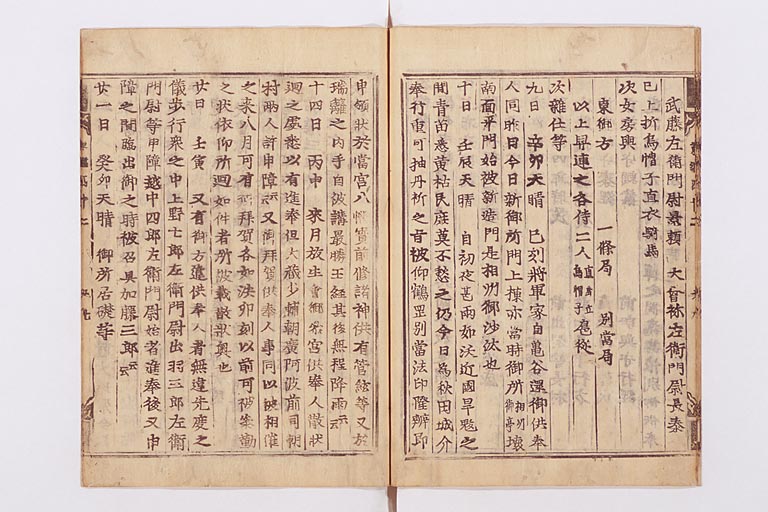 武藤左衛門尉景頼 大曾祢左衛門尉長泰
已上折烏帽子直衣騎馬
次女房輿
東御方 一條局 別當局
以上舁連之各侍二人直垂立烏帽子扈從
次雜仕等
九日 辛卯天晴 巳刻將軍家自亀谷還御供奉
人同昨日今日新御所門上棟亦當時御所相州御亭壞
南面平門始被新造門是相州御沙汰也
十日 壬辰天晴 自初夜甚雨如沃近國旱魃之
間青苗悉黄枯民庶莫不愁之仍今日為秋田城介
奉行重可抽丹祈之旨被仰鶴罡別當法印隆辨即
申領状於當宮八幡寳前修諸神供有管絃等又於
瑞籬之内手自被講最勝王経其後無程降雨云云
十四日 丙申 來月放生會御參宮供奉人散状
廻之處悉以有進奉但大藏少輔朝廣阿波前司朝
村兩人許申障云云又御拜賀供奉人事同以被相催
之來八月可有御拜賀各如法卯刻以前可被參勤
之状依仰所廻如件者所被載散状奥也
廿日 壬寅 又有御方違供奉人者無違先度之
儀歩行衆之中上野七郎左衛門尉出羽三郎左衛
門尉等申障越中四郎左衛門尉始者進奉後又申
障之間臨出御之時被召具加藤三郎云云
廿一日 癸卯天晴 御所居礎等